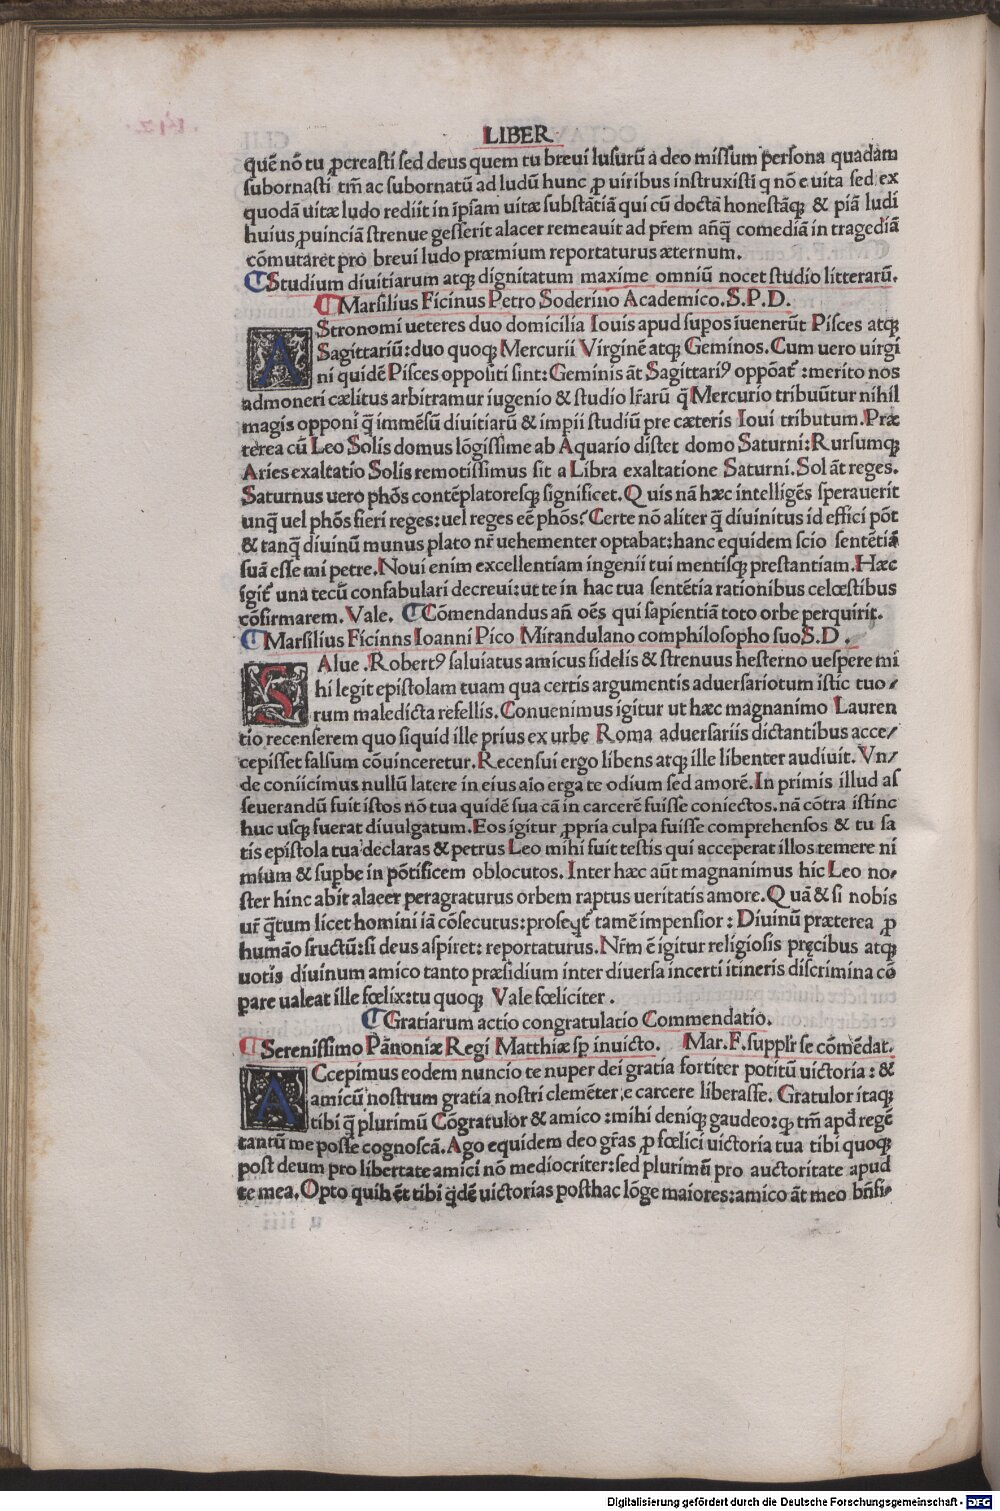 LIBER
quē nō tu ꝓcreasti sed deus quem tu breui lusurū a deo missum persona quadam
subornasti tm̄ ac subornatū ad ludū hunc ꝓ uiribus instruxisti q nō e uita sed ex
quodā uitæ ludo rediit in īpsam uitæ substātiā qui cū doctā honestāqꝫ & piā ludi
huius ꝓuinciā strenue gesserit alacer remeauit ad pr̄em an̄q̄ comediā in tragediā
cōmutaret pro breui ludo præmium reportaturus æternum.
Studium diuitiarum atqꝫ dignitatum maxime omniū nocet studio litterarū.
Marsilius Ficinus Petro Soderino Academico. S. P. D.
AStronomi ueteres duo domicilia Iouis apud supos iuenerūt Pisces atqꝫ
Sagittariū: duo quoqꝫ Mercurii Virginē atqꝫ Geminos. Cum uero uirgi
ni quidē Pisces oppositi sint: Geminis āt Sagittariꝰ oppōat᷑ : merito nos
admoneri cælitus arbitramur iugenio & studio lr̄arū q̄ Mercurio tribuūtur nihil
magis opponi q̄ immēsū diuitiarū & impii studiū pre cæteris Ioui tributum. Præ
terea cū Leo Solis domus lōgissime ab Aquario distet domo Saturni: Rursumqꝫ
Aries exaltatio Solis remotissimus sit a Libra exaltatione Saturni. Sol āt reges.
Saturnus uero phōs contēplatoresqꝫ significet. Quis nā hæc intelligēs sperauerit
unq̄ uel phōs fieri reges: uel reges eē phōs? Certe nō aliter q̄ diuinitus id effici pōt
& tanq̄ diuinū munus plato nr̄ uehementer optabat: hanc equidem scio sentētiā
suā esse mi petre. Noui enim excellentiam ingenii tui mentisqꝫ prestantiam. Hæc
igit᷑ una tecū confabulari decreui: ut te in hac tua sentētia rationibus celœstibus
cōsirmarem. Vale. Cōmendandus an̄ oēs qui sapientiā toto orbe perquirit.
Marsilius Ficinns Ioanni Pico Mirandulano comphilosopho suo S. D .
SAlue . Robertꝰ saluiatus amicus fidelis & strenuus hesterno uespere mi
hi legit epistolam tuam qua certis argumentis aduersariotum istic tuo/
rum maledicta refellis. Conuenimus igitur ut hæc magnanimo Lauren
tio recenserem quo siquid ille prius ex urbe Roma aduersariis dictantibus acce/
cepisset falsum cōuinceretur. Recensui ergo libens atqꝫ ille libenter audiuit. Vn/
de coniicimus nullū latere in eius aio erga te odium sed amorē. In primis illud as
seuerandū fuit istos nō tua quidē sua cā in carcerē fuisse coniectos. nā cōtra istinc
huc usqꝫ fuerat diuulgatum. Eos igitur ꝓpria culpa fuisse comprehensos & tu sa
tis epistola tua declaras & petrus Leo mihi fuit testis qui acceperat illos temere ni
mium & supbe in pōtificem oblocutos. Inter hæc aūt magnanimus hic Leo no/
ster hinc abit alaeer peragraturus orbem raptus ueritatis amore. Quā & si nobis
ur̄ q̄tum licet homini iā cōsecutus: proseqt᷑ tamē impensior : Diuinū præterea ꝓ
humāo fructū: si deus aspiret: reportaturus. Nr̄m ē igitur religiosis pręcibus atqꝫ
uotis diuinum amico tanto præsidium inter diuersa incerti itineris discrimina cō
pare ualeat ille fœlix: tu quoqꝫ Vale fœliciter .
Gratiarum actio congratulatio Commendatio.
Serenissimo Pānoniæ Regi Matthiæ sp inuicto. Mar. F. supplr̄ se cōmēdat.
ACcepimus eodem nuncio te nuper dei gratia fortiter potitū uictoria: &
amicū nostrum gratia nostri clemēter, e carcere liberasse. Gratulor itaqꝫ
tibi q̄ plurimū Cōgratulor & amico : mihi deniqꝫ gaudeo: qꝫ tm̄ apd regē
tantū me posse cognoscā. Ago equidem deo gr̄as ꝓ fœlici uictoria tua tibi quoqꝫ
post deum pro libertate amici nō mediocriter: sed plurimū pro auctoritate apud
te mea. Opto quih ēt tibi q̄dē uictorias posthac lōge maiores: amico āt meo bn̄fi/
Digitalisierung gefördert durch die Deutsche Forschungsgemeinschaft - DFG